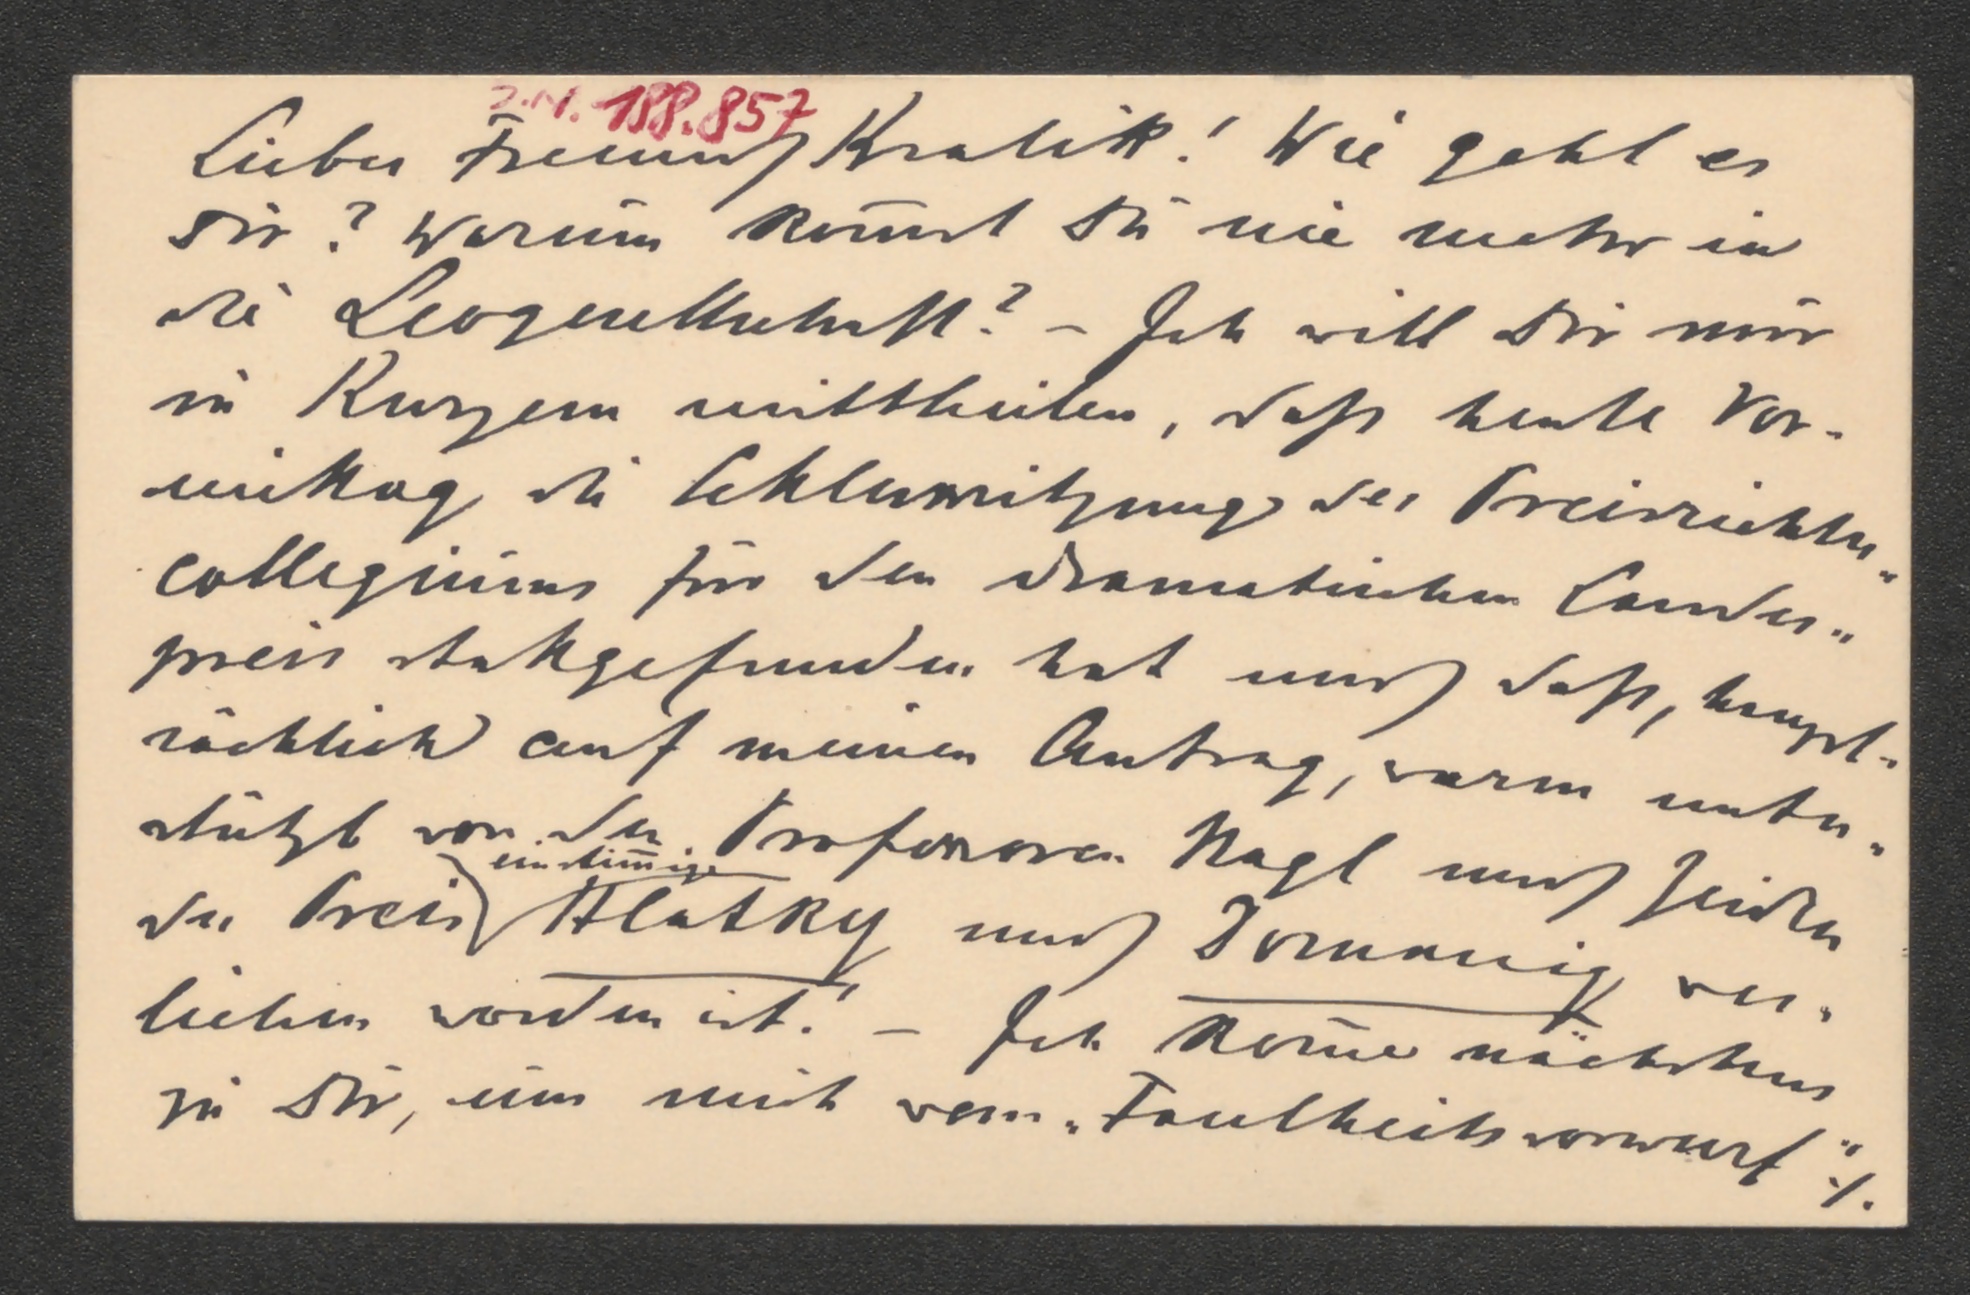 I.N. 188.857
Lieber Freund Kralik! Wie geht es
Dir? Warum kom̄st Du nie mehr in
die Leogesellschaft? – Ich will Dir nur
in Kurzem mittheilen, daß heute Vor-
mittag die Schlussitzung des Preisrichter-
collegiums für den dramatischen Landes-
preis stattgefunden hat und daß, haupt-
sächlich auf meinen Antrag, warm unter-
stützt von den Professoren Nagl und Zeidler
einstim̄ig
der Preis Hlatky und Domanig ver-
liehen worden ist! – Ich kom̄e nächstens
zu Dir, um mich vom „Faulheitsvorwurf" ./.